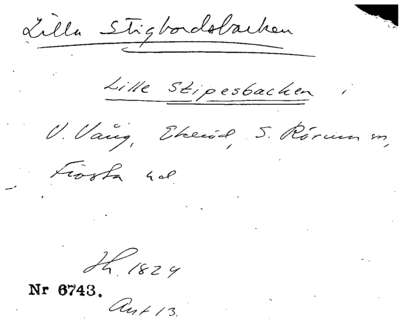 Lilla Stigbordsbacken
Lille Stipesbacken i
V. Vång, Ekeröd, S. Rörum sn,
Frosta hd
Jh. 1824
Nr 6743.
Ant 13.